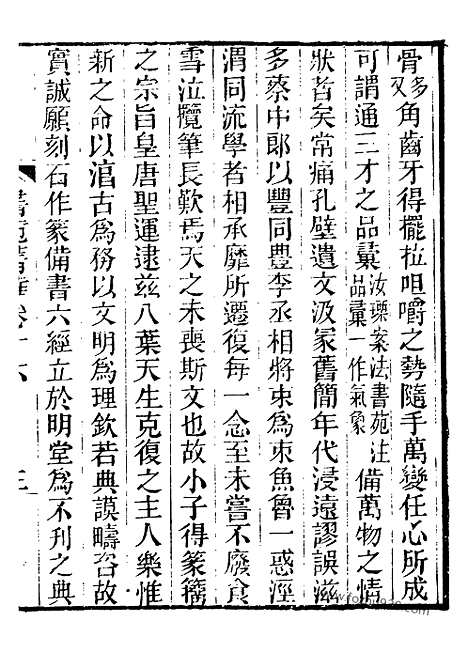 骨多又角齒牙得擺拉咀嚼之勢隨手萬變任心所成
可謂通三才之品彙汝瑮案法書苑注品彙一作氣象備萬物之情
狀者矣常痛孔壁遺文汲冢舊簡年代浸遠謬誤滋
多蔡中郎以豐同豊李丞相將朿爲束魚魯一惑涇
渭同流學者相承靡所遷復每一念至未嘗不廢食
雪泣攬筆長歎焉天之未喪斯文也故小子得篆籀
之宗旨皇唐聖運逮兹八葉天生克復之主人樂惟
新之命以㳙古爲務以文明爲理欽若典謨疇咨故
實誠願刻石作篆備書六經立於明堂爲不刊之典
書苑菁華卷十六
三